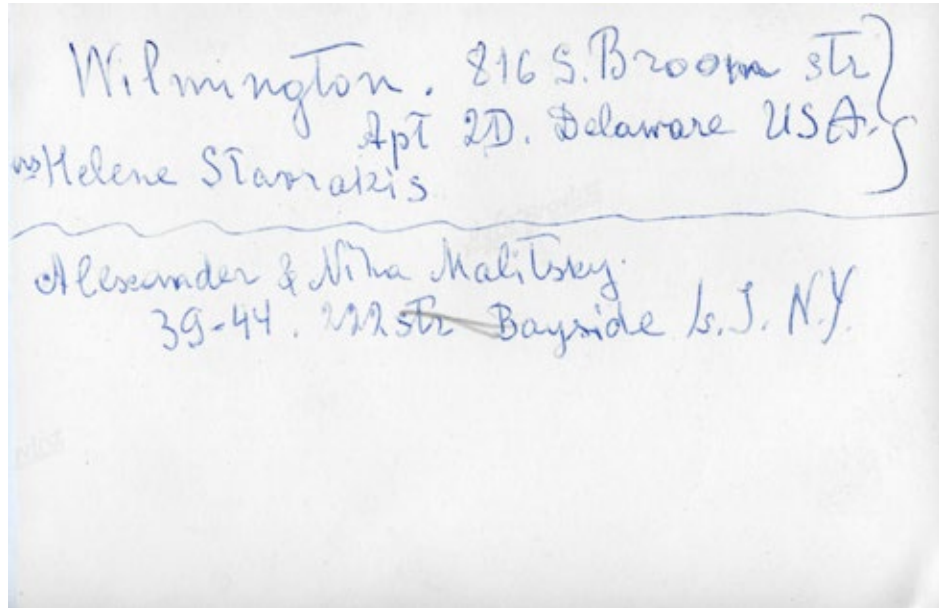 Wilmington. 816 S. Broom str
Apt 2D. Delaware USA.
Helene Stavrakis
Alexander & Nina Malitsky.
39-44. 222 str Bayside L.I. N.Y.